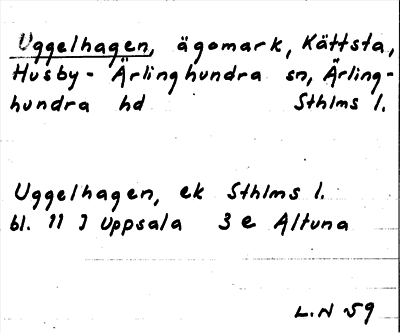 Uggelhagen, ägomark, Kättsta,
Husby-Ärlinghundra sn, Ärling-
hundra hd Sthlms l.
Uggelhagen, ek Sthlms l.
bl. 11 I Uppsala 3 e Altuna
L.N 59